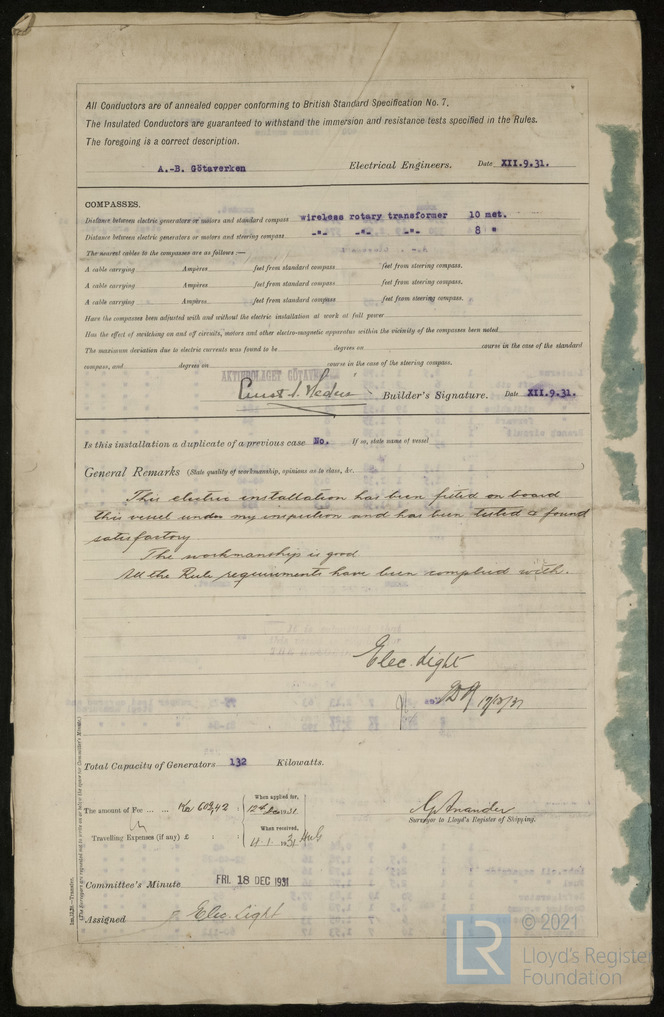 All Conductors are of annealed copper conforming to British Standard Specification No. 7.
The Insulated Conductors are guaranteed to withstand the immersion and resistance tests specified in the Rules.
The foregoing is a correct description.
A.-B. Götaverken Electrical Engineers. Date XII.9.31.
COMPASSES.
Distance between electric generators or motors and standard compass wireless rotary transformer 10 met.
Distance between electric generators or motors and steering compass -"- -"- -"- 8 "
The nearest cables to the compasses are as follows:—
A cable carrying Ampères feet from standard compass feet from steering compass.
A cable carrying Ampères feet from standard compass feet from steering compass.
A cable carrying Ampères feet from standard compass feet from steering compass.
Have the compasses been adjusted with and without the electric installation at work at full power
Has the effect of switching on and off circuits, motors and other electro-magnetic apparatus within the vicinity of the compasses been noted
The maximum deviation due to electric currents was found to be degrees on course in the case of the standard
compass, and degrees on course in the case of the steering compass.
AKTIEBOLAGET GÖTAVERKEN
Builder's Signature. Date XII.9.31.
Is this installation a duplicate of a previous case No. If so, state name of vessel
General Remarks (State quality of workmanship, opinions as to class, &c.
This electric installation has been fitted on board
this vessel under my inspection and has been tested & found
satisfactory
The workmanship is good
All the Rule requirements have been complied with.
Elec. Light
17/12/31
Total Capacity of Generators 132 Kilowatts.
The amount of Fee ... ... Kr 609,42
When applied for,
12th Dec 1931.
Travelling Expenses (if any) £ : :
When received,
1931
Surveyor to Lloyd's Register of Shipping.
Committee's Minute FRI. 18 DEC 1931
Assigned Elec. Light
© 2021
LR
Lloyd's Register
Foundation